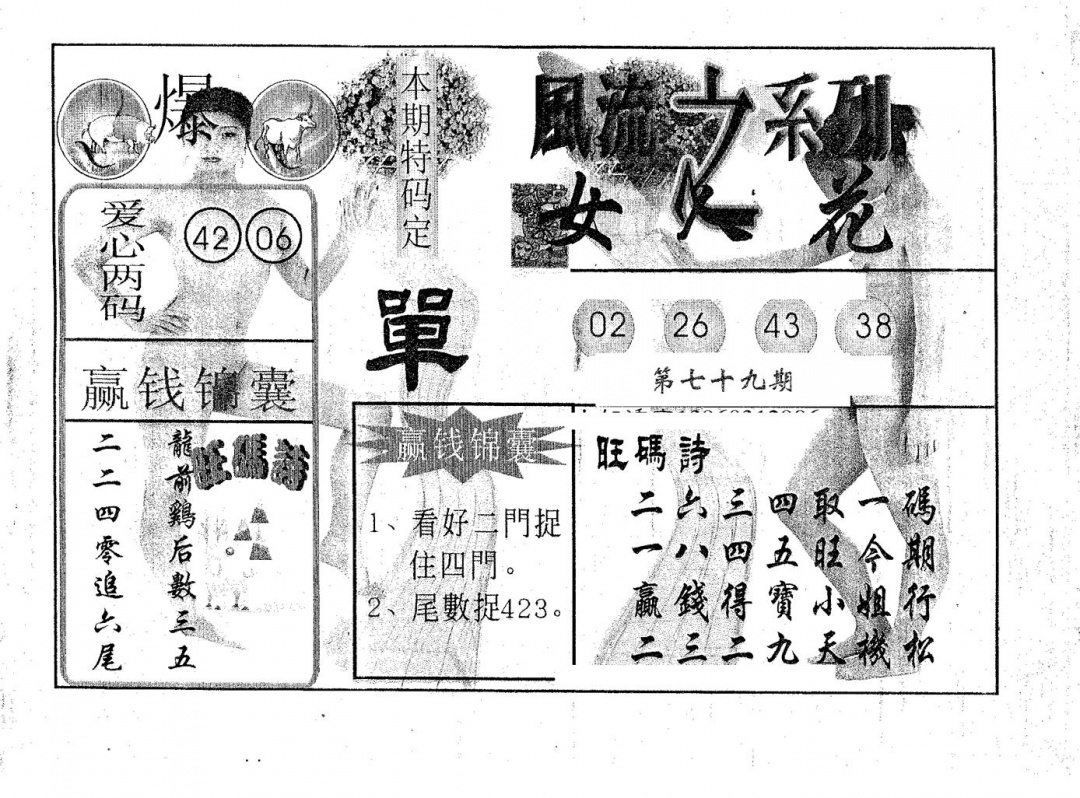 爆
爱心两码
42 06
赢钱锦囊
龍前鷄后數三五
二二四零追六尾
旺碼詩
本期特码定
單
赢钱锦囊
1、看好二門捉
住四門。
2、尾數捉423。
風流之系列
女人花
02 26 43 38
第七十九期
旺碼詩
二六三四取一碼
一八四五旺今期
贏錢得寶小姐行
二三二九天機松